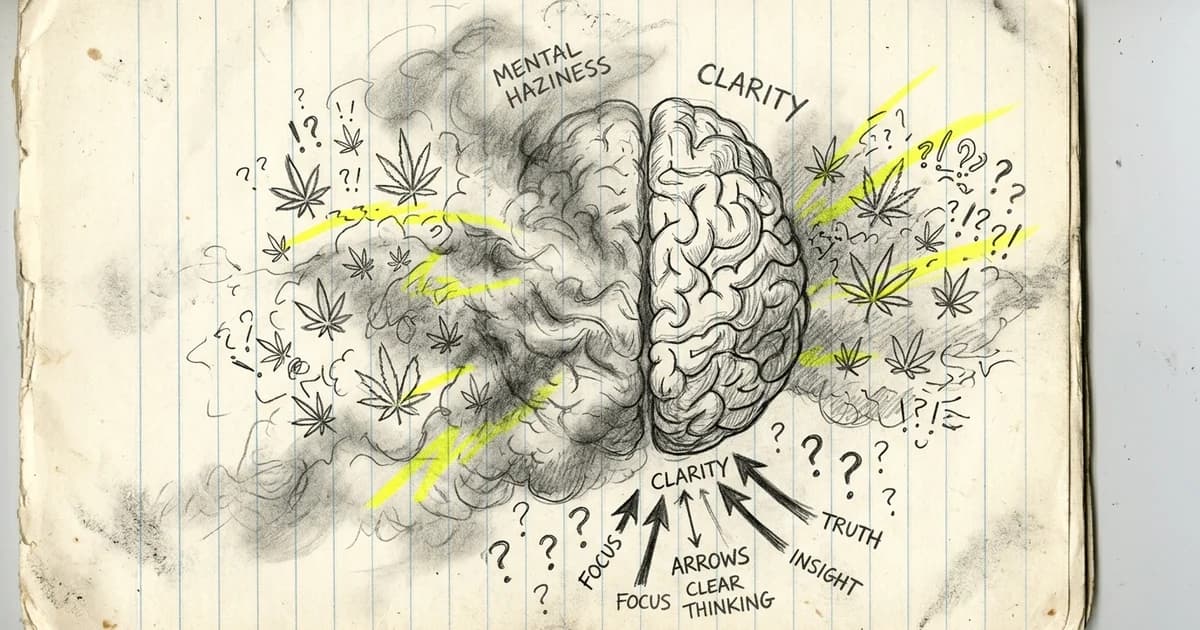 MENTAL
HAZINESS
CLARITY
?
!!
!?
??
?!
CLARITY
FOCUS
FOCUS
ARROWS
CLEAR
THINKING
INSIGHT
TRUTH
? ? ? ?
? ? ? ? ?